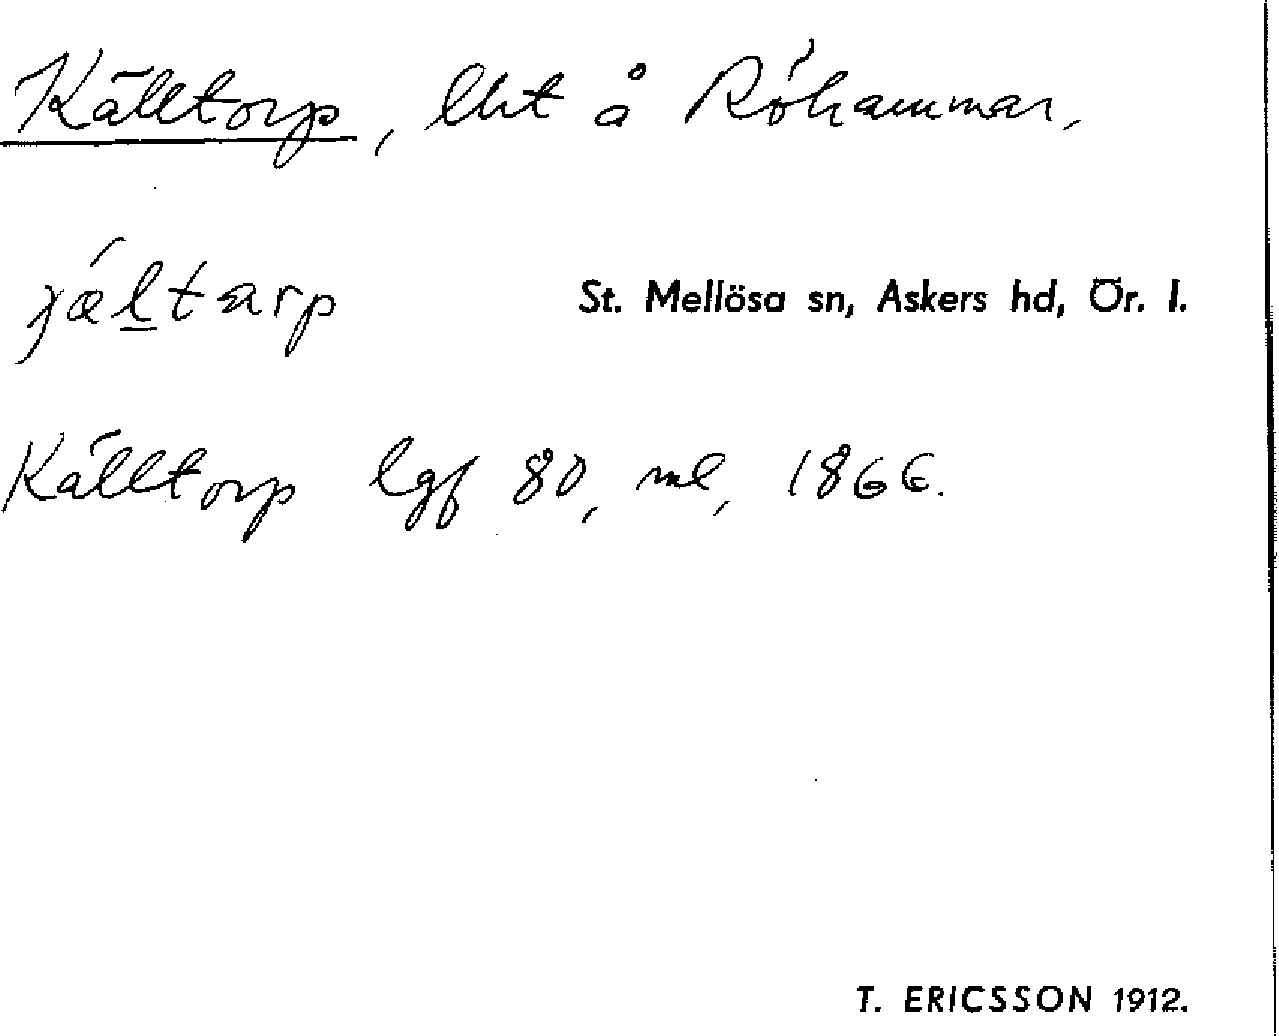 Källtorp, lht å Röhammar,
St. Mellösa sn, Askers hd, Ör. l.
Källtorp lgf 80, ml, 1866.
T. ERICSSON 1912.